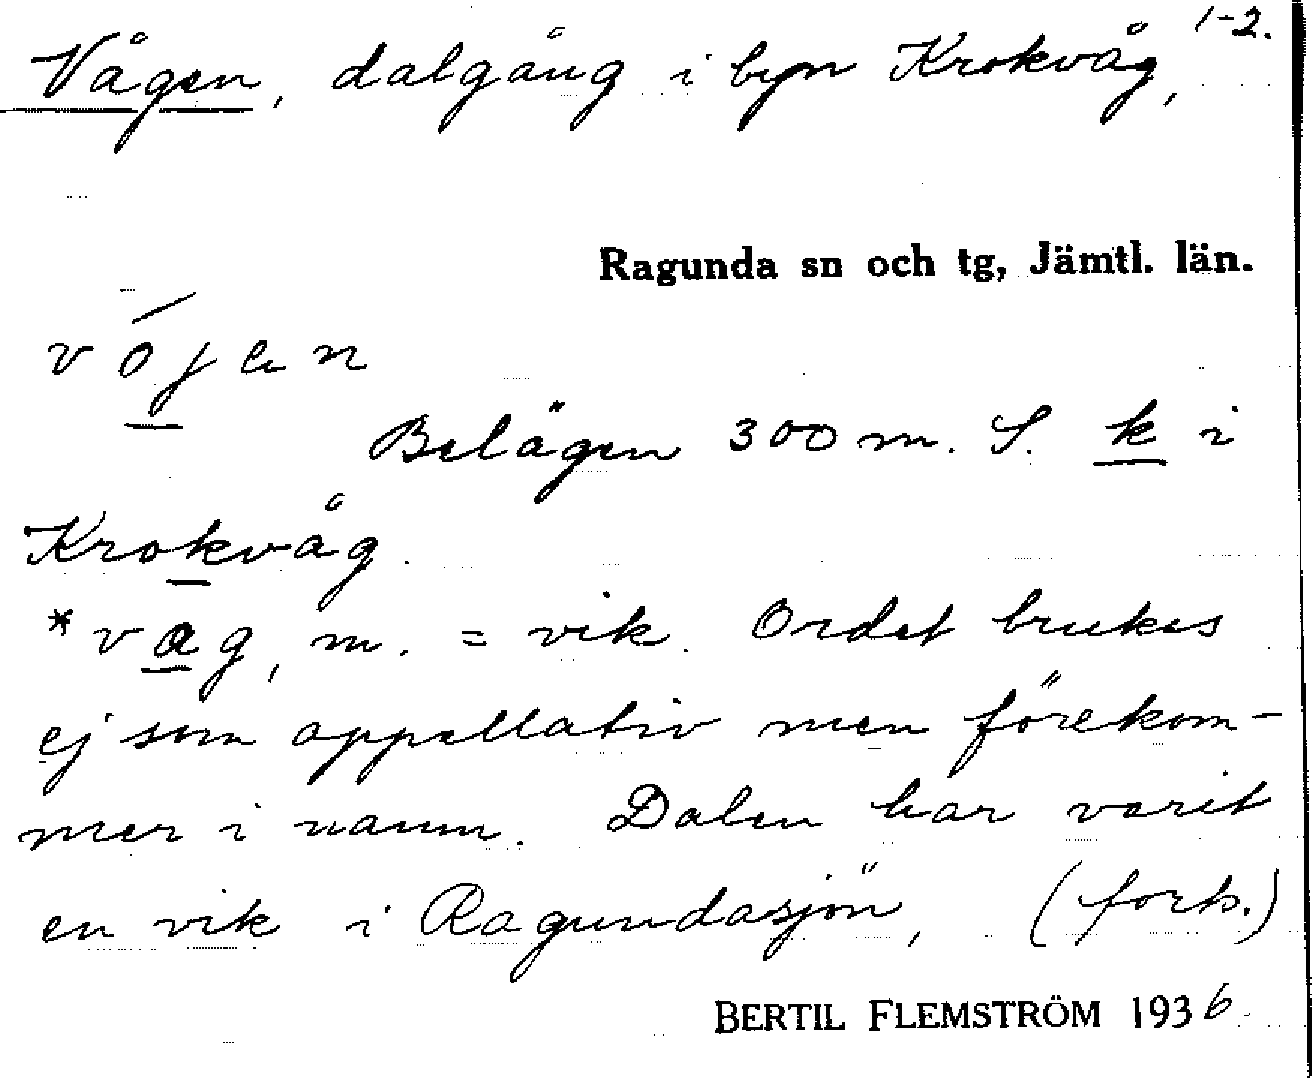 1-2.
Vågen, dalgång i byn Krokvåg,
Ragunda sn och tg, Jämtl. län.
vó̲jen
Belägen 300 m. S. k i
Krokvåg.
*vag, m. = vik. Ordet brukes
ej som appellativ men förekom-
mer i namn. Dalen har varit
en vik i Ragundasjön, (forts.)
BERTIL FLEMSTRÖM 1936